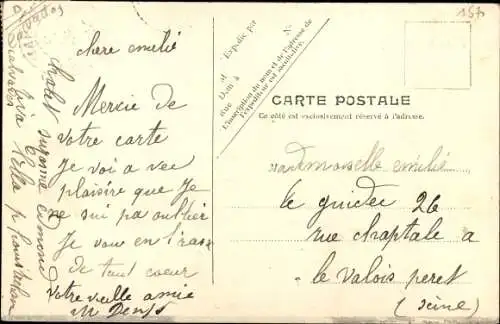 chere emilie
Mercie de
votre carte
Je voi a vec
plaisire que Je
ne sui pa oublier
Je vous en l'
de tout coeur
votre vieille amie
M Denys
chalet suzanne edmond
villa
Expédié par
M
Dom à
rue
L'inscription du nom et de l'adresse de
l'expéditeur est facultative.
CARTE POSTALE
Ce côté est exclusivement réservé à l'adresse.
Mademoiselle emilie
le guidec 26
rue chaptale a
le valois peret
(seine)
157